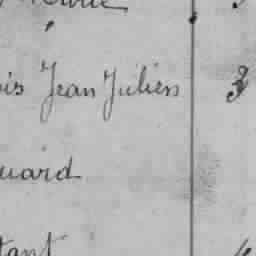 ois Jean Julien 3
uard
tant